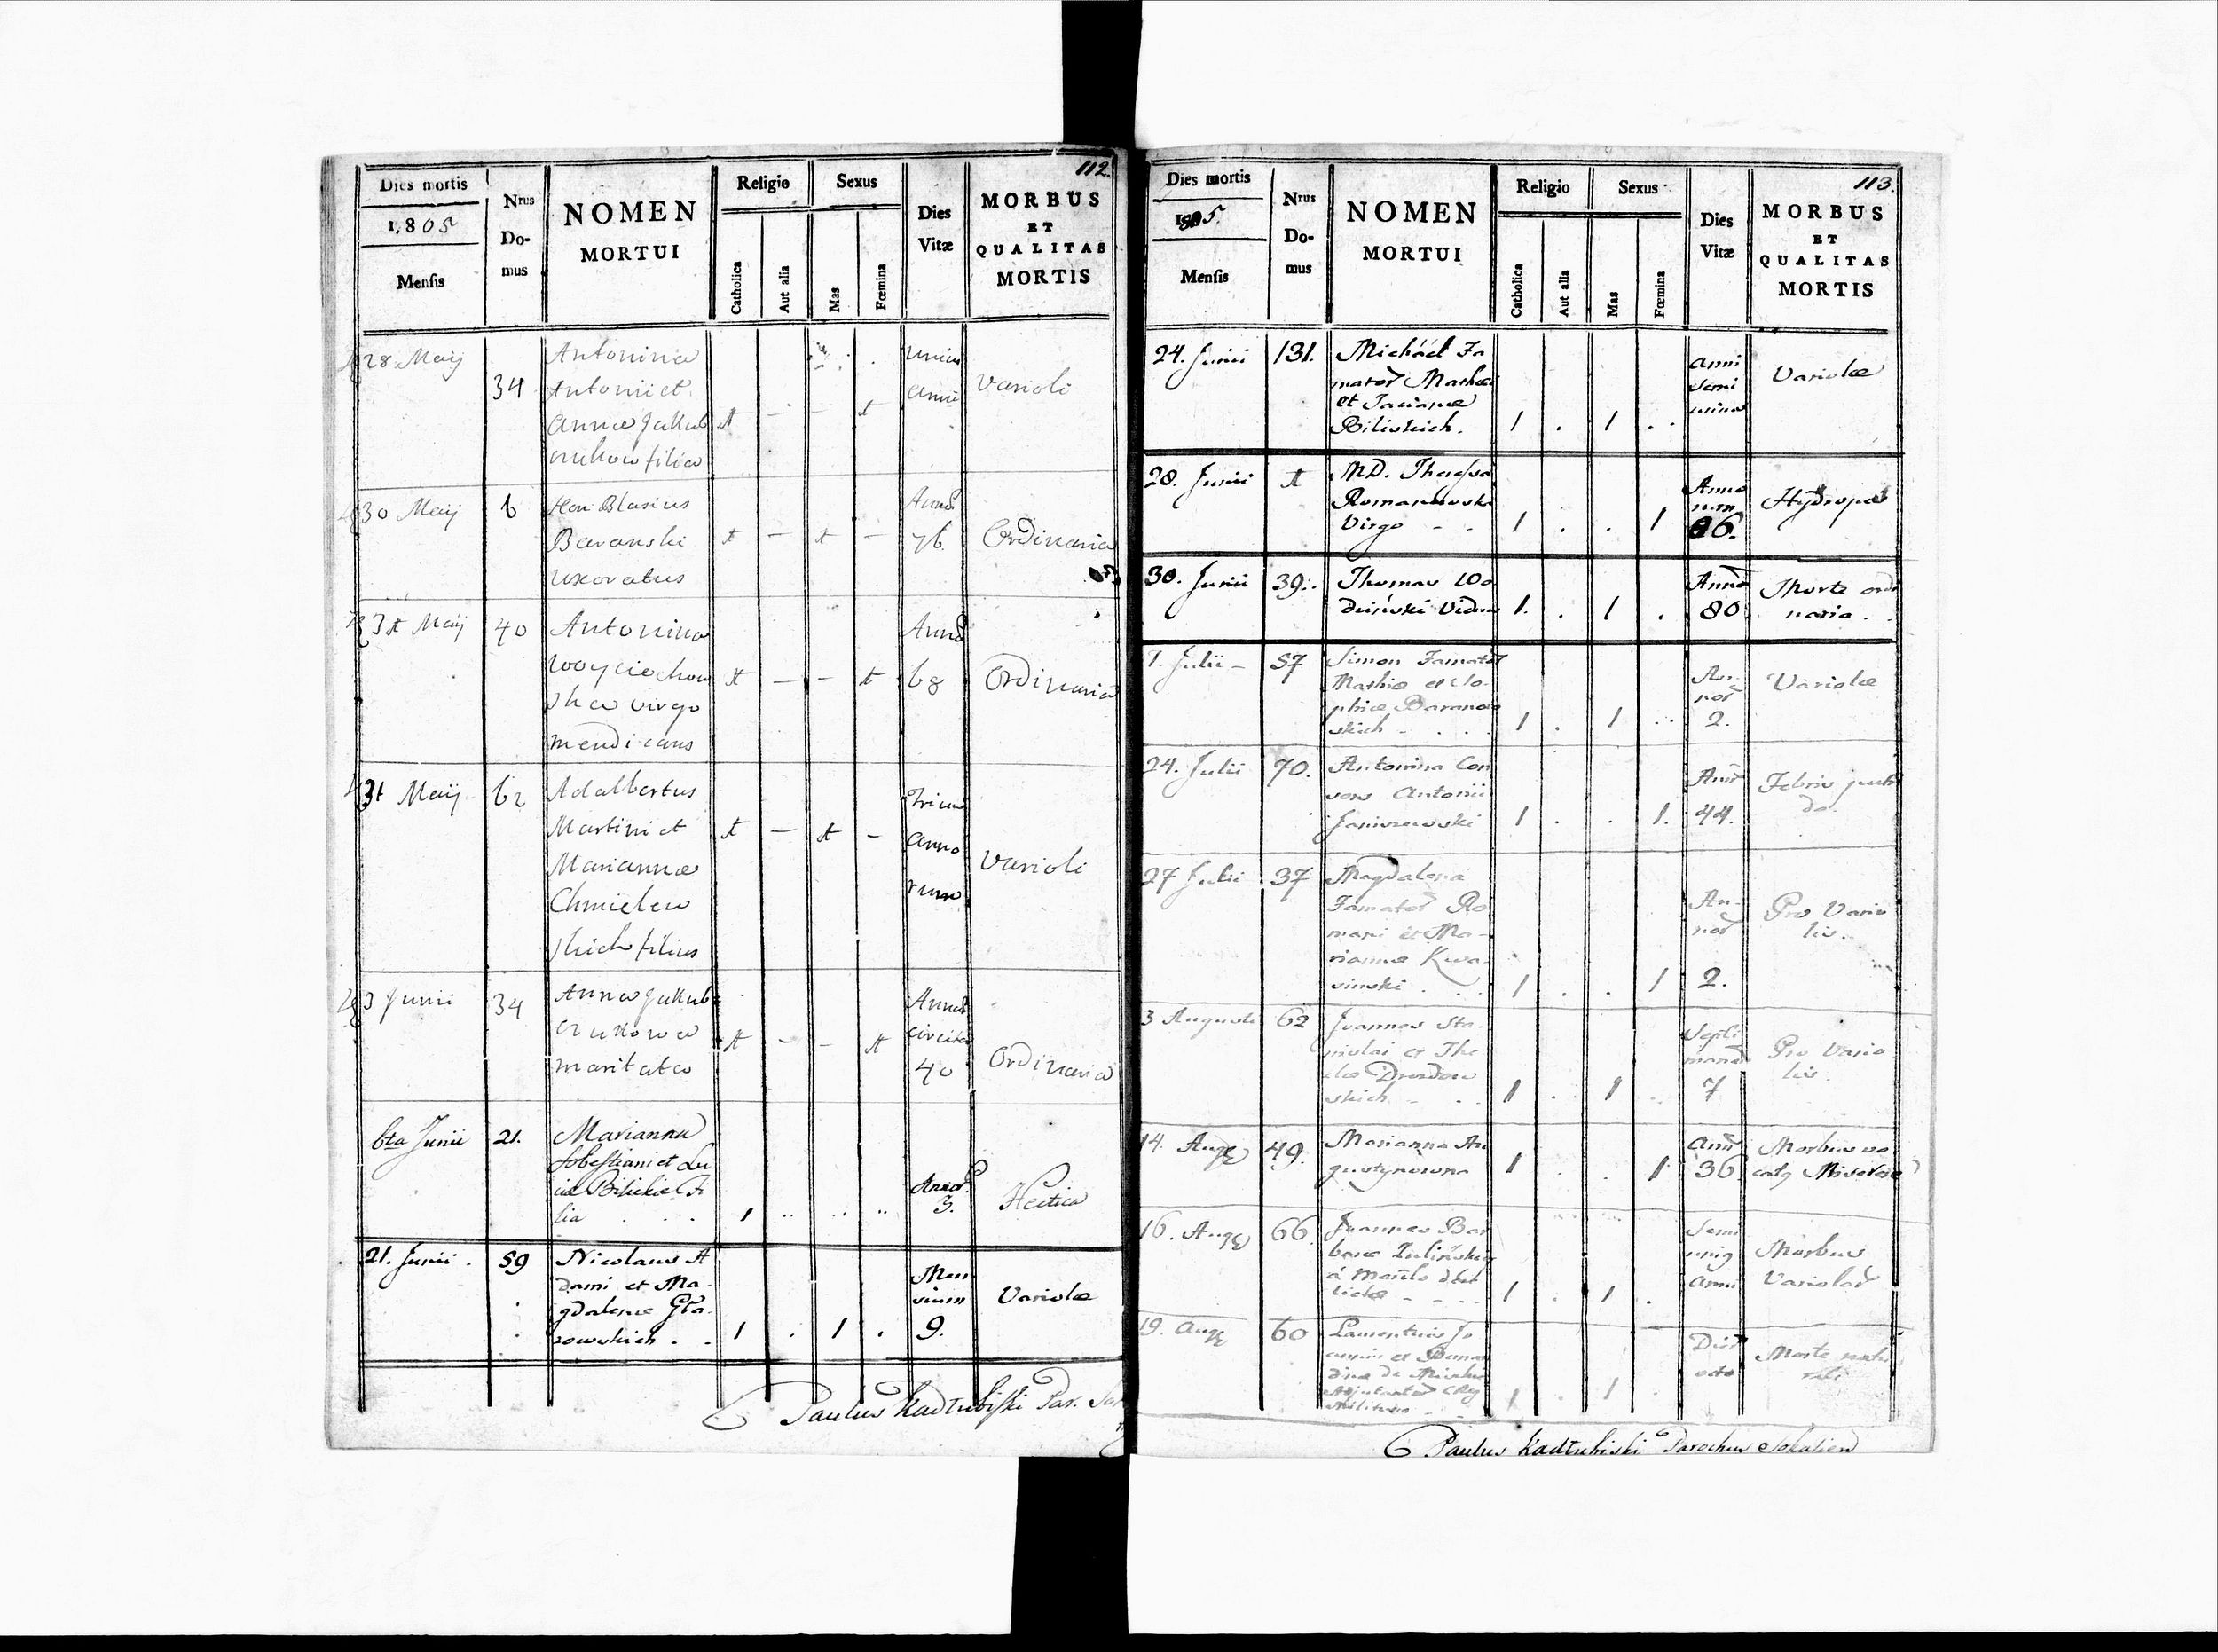 112.
Dies mortis
1,805
Mensis
Nrus
Do-
mus
NOMEN
MORTUI
Religio
Catholica
Aut alia
Sexus
Mas
Fœmina
Dies
Vitæ
MORBUS
ET
QUALITAS
MORTIS
28 Maij
34
Antonina
Antonii et
Annæ Jakub
filia
Unius
Anni
Varioli
30 Maij
6
Blasius
Baranski
uxoratus
Annor
76
Ordinaria
31 Maij
40
Antonina
Woyciechow
ska virgo
mendicans
Annor
68
Ordinaria
31 Maij
62
Adalbertus
Martini et
Mariannæ
Chmielew
skich filius
Trium
anno
rum
Varioli
3 Junii
34
Anna Jakub
czukowa
maritata
Annor
circiter
40
Ordinaria
6ta Junii
21.
Marianna
Sobestiani et Lu
ciæ Bilickie Fi
lia
Annor.
3.
Hectica
21. Junii.
59
Nicolaus A
dami et Ma-
gdalenæ Gła-
zowskich . -
1 . 1 .
Men
sium
9.
Variolæ
Paulus Kadłubiski Par. Sok
113.
Dies mortis
1805.
Mensis
Nrus
Do-
mus
NOMEN
MORTUI
Religio
Catholica
Aut alia
Sexus
Mas
Fœmina
Dies
Vitæ
MORBUS
ET
QUALITAS
MORTIS
24. Junii
131.
Micháél Fa
mator Mathæi
et
Biliskich.
1 . 1 . .
Anni
semi
Variolæ
28. Junii
1
MD. Theressa
Romanowska
Virgo - -
1 . . 1
Anno
rum
86.
Hydrope
30. Junii
39.
Thomas Wo
dziński Viduus
1. . 1 .
Annor
80.
Morte ordi
naria .
7. Julii -
57
Simon Famator
Mathiæ et So-
phiæ Baranow
skich - . . .
1 . 1 . .
An-
nor
2.
Variolæ
24. Julii
70.
Antonina Con
sors Antonii
Janiszewski
1 . . 1.
Annor
44.
Febris putri
da.
27 Julii
37
Magdalena
Famator Ro
mani et Ma-
riannæ Kwa-
sinski . . .
1 . . 1
An-
nor
2.
Pro Vario
lis.
3 Augusti
62
Joannes Sta-
nislai et The
clæ Drozdow
skich - . .
1 . 1 ..
Septi
manar
7
Pro Vario
lis.
14. Augq
49.
Marianna Au
gustynowna
1 . . 1
Ann
36.
Morbus vo
catq Miserere
16. Augq
66.
Joannes Bar
baræ Zulińskiej
á Marito dere
lictæ - - . .
1 . 1 .
Semi
uniq
Anni
Morbus
Variolar
19. Augq
60
Laurentius Jo
annis et
Adjutantor Reg
Militum
1 . 1 .
Dier
octo
Morte natu
rali
Paulus Kadłubiski Parochus Sokalien